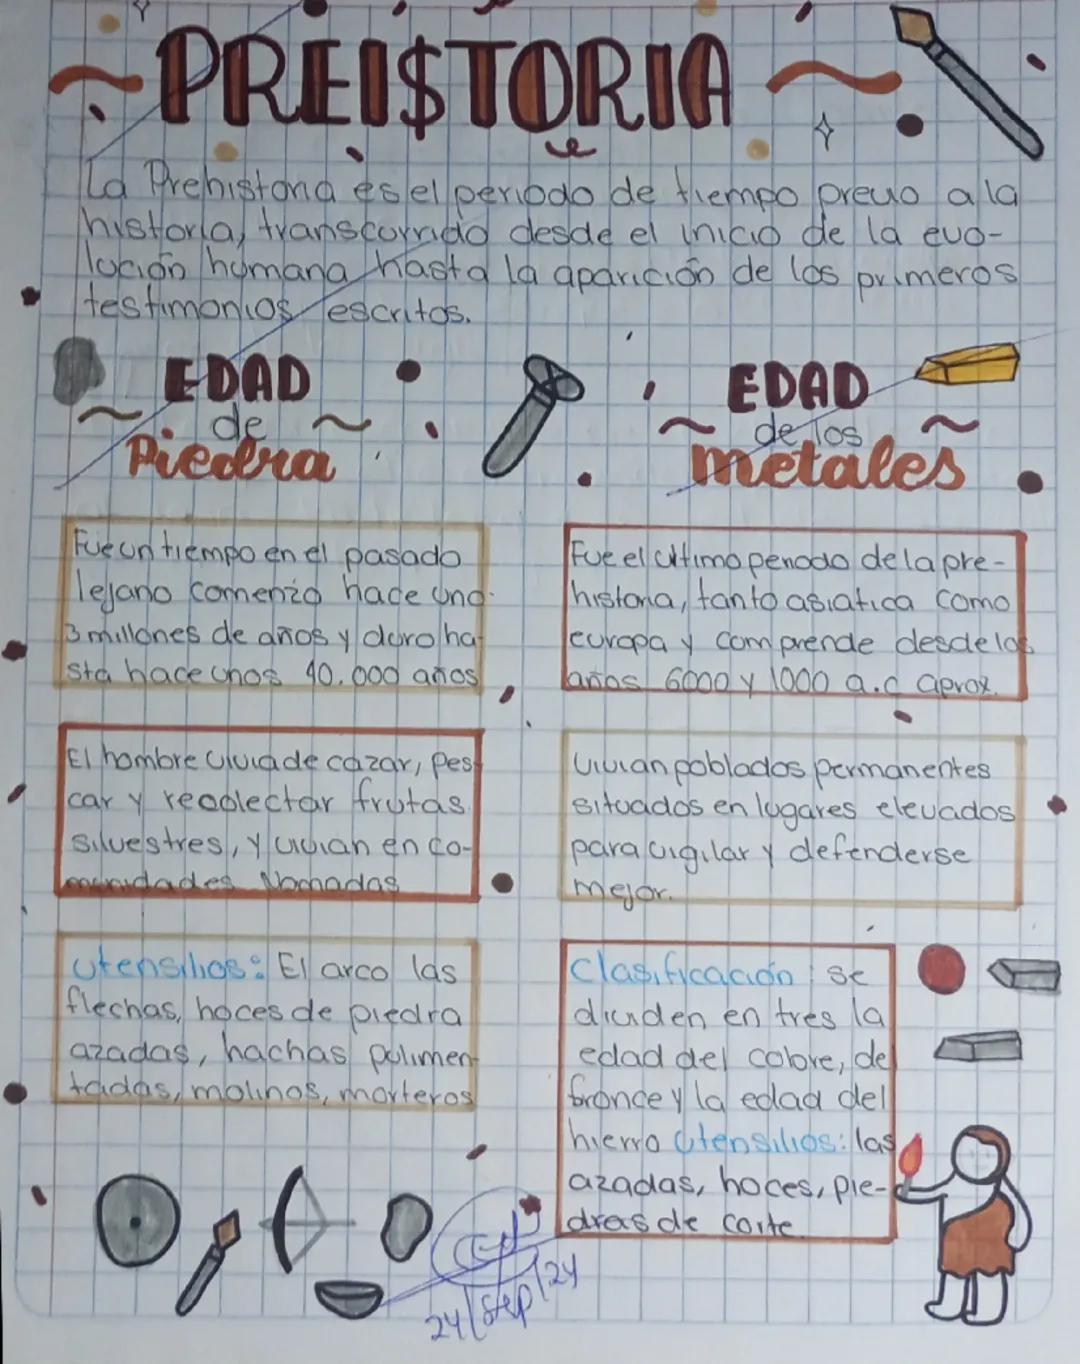 PREI$TORIA
La Prehistoria es el periodo de tiempo previo a la
historia, transcurrido desde el inicio de la evo-
lución humana hasta la aparición de los primeros
testimonios escritos.
EDAD
de
Piedra
Fue un tiempo en el pasado
lejano comenzo hace uno
3 millones de años y duro ha
sta hace unos 40.000 años
El hombre vivia de cazar, pes
car y recolectar frutas
silvestres, y vivian en co-
munidades Nomadas
Utensilios: El arco las
flechas, hoces de piedra
azadas, hachas pulimen
tadas, molinos, morteros
EDAD
de los
metales
Fue el ultimo periodo de la pre-
historia, tanto asiatica como
europa y comprende desde los
años 6000 y 1000 a.c aprox.
Vivian poblados permanentes
situados en lugares elevados
para vigilar y defenderse
mejor.
Clasificación: se
dividen en tres la
edad del cobre, de
bronce y la edad del
hierro Utensilios: las
azadas, hoces, pie-
dras de corte
24/sep/24